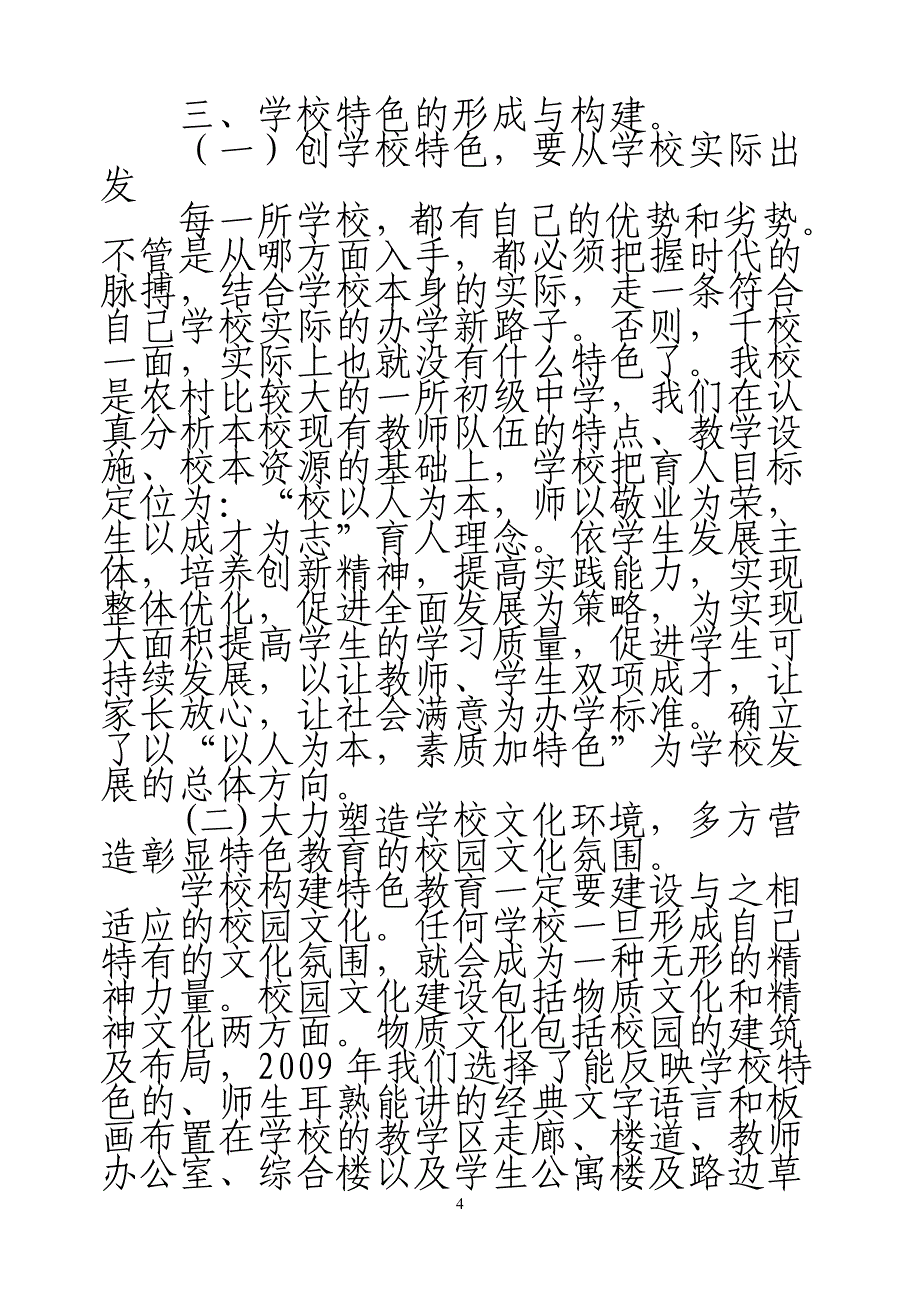 三、学校特色的形成与构建。
（一）创学校特色，要从学校实际出
发
每一所学校，都有自己的优势和劣势。
不管是从哪方面入手，都必须把握时代的
脉搏，结合学校本身的实际，走一条符合
自己学校实际的办学新路子。否则，千校
一面，实际上也就没有什么特色了。我校
是农村比较大的一所初级中学，我们在认
真分析本校现有教师队伍的特点、教学设
施、校本资源的基础上，学校把育人目标
定位为：“校以人为本，师以敬业为荣，
生以成才为志”育人理念。依学生发展主
体，培养创新精神，提高实践能力，实现
整体优化，促进全面发展为策略，为实现
大面积提高学生的学习质量，促进学生可
持续发展，以让教师、学生双项成才，让
家长放心，让社会满意为办学标准。确立
了以“以人为本，素质加特色”为学校发
展的总体方向。
(二)大力塑造学校文化环境，多方营
造彰显特色教育的校园文化氛围。
学校构建特色教育一定要建设与之相
适应的校园文化。任何学校一旦形成自己
特有的文化氛围，就会成为一种无形的精
神力量。校园文化建设包括物质文化和精
神文化两方面。物质文化包括校园的建筑
及布局，2009年我们选择了能反映学校特
色的、师生耳熟能讲的经典文字语言和板
画布置在学校的教学区走廊、楼道、教师
办公室、综合楼以及学生公寓楼及路边草
4